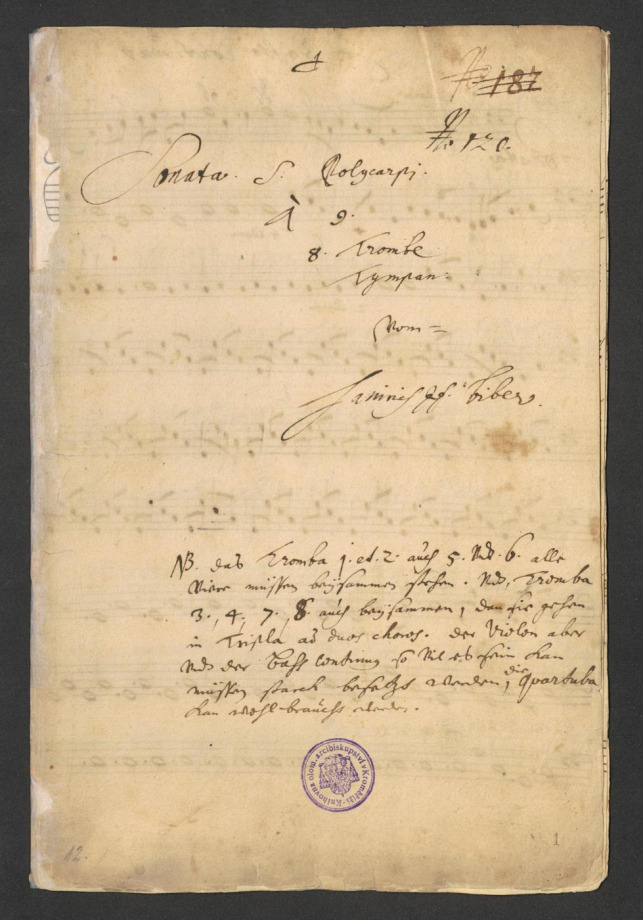 No 187
No 120.
Sonata. S. Polycarpi.
À 9.
8. Trombe
Tympan:
Vom =
Biber.
NB. das Tromba 1. et. 2. auch 5. Vnd. 6. alle
Viere müssen beysammen stehen. Vnd, Tromba
3., 4, 7., 8. auch beysammen, den sie gehen
in Tripla ad duos choros. der Violon aber
Vnd der Bass Continuo so Vil es sein kan
müssen starck besetzt werden, die quartuba
kan wohl braucht werden.
Knihovna olom. arcibiskupství v Kroměříži
12.
1